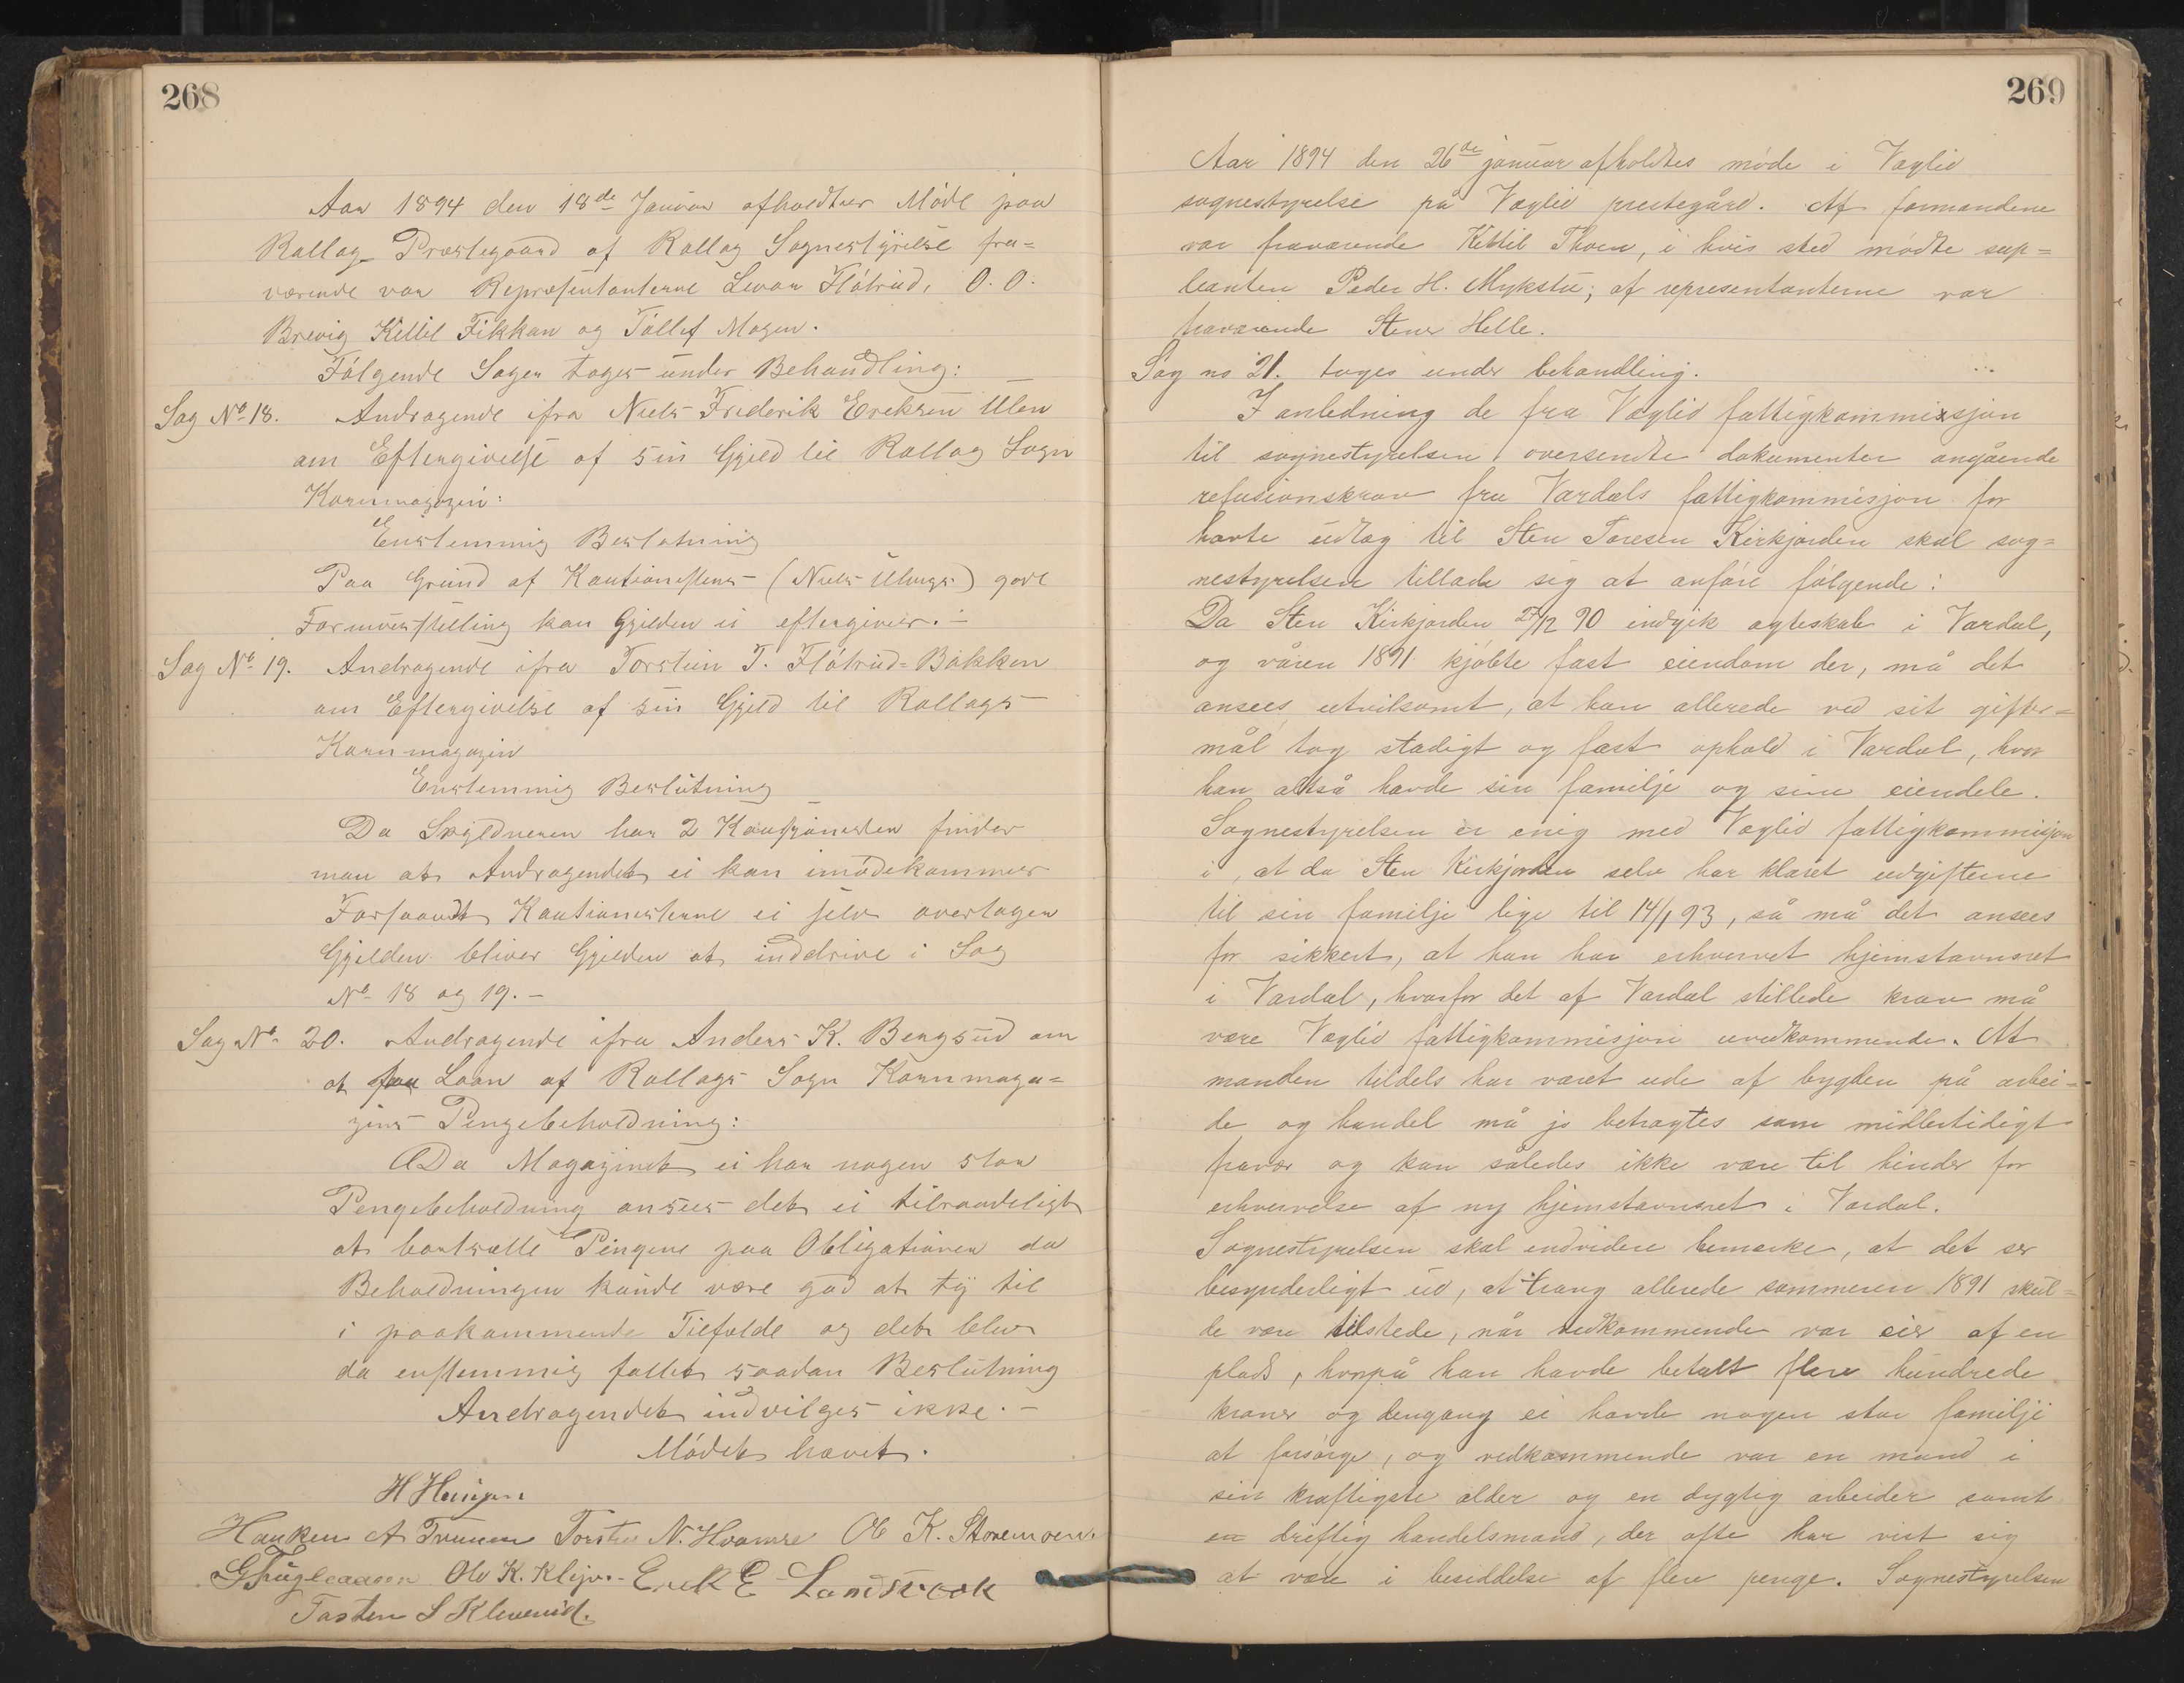 268
Aar 1894 den 18de Januar afholdtes Møde paa
Rollag Præstegaard af Rollag Sognestyrelse fra=
værende var Repræsentanterne Levor Fløtrud, O. O.
Brevig Kittil Fikkan og Tollef Mogen.
Følgende Sager toges under Behandling:
Sag No 18. Andragende ifra Niels Friderik Eriksen Ulen
om Eftergivelse af sin Gjeld til Rollag Sogn
Kornmagazin:
Enstemmig Beslutning
Paa Grund af Kautionistens (Niels Ulengs) gode
Formuesstilling kan Gjelden ei eftergives. –
Sag No 19. Andragende ifra Torstein T. Fløtrud=Bakken
om Eftergivelse af sin Gjeld til Rollags
Kornmagazin
Enstemmig Beslutning
Da Skyldneren har 2 Kautionister finder
man at Andragendet ei kan imødekommes
Forsaavidt Kautionisterne ei selv overtager
Gjelden bliver Gjelden at inddrive i Sag
No 18 og 19. –
Sag No 20. Andragende ifra Anders K. Bergsud om
at faa Laan af Rollags Sogn Kornmaga=
zins Pengebeholdning:
Da Magazinet ei har nogen stor
Pengebeholdning ansees det ei tilraadeligt
at bortsætte Pengene paa Obligationer da
Beholdningen kunde være god at ty til
i paakommende Tilfælde og det blev
da enstemmig fattet saadan Beslutning
Andragendet indvilges ikke. –
Mødet hævet.
H Heingen
Haaken A Traaen Torsten N. Hvamre Ole K. Storemoen.
Ole K. Erik E Landsverk
Tosten S Kleverud.
269
Aar 1894 den 26de januar afholdtes møde i Veglid
sognestyrelse på Veglid prestegård. Af formændene
var fraværende Kittil Thoen, i hvis sted mødte sup=
leanten Peder H. Mykstu; af representanterne var
fraværende Stener Helle.
Sag no 21. toges under behandling.
I anledning de fra Veglid fattigkommissjon
til sognestyrelsen oversendte dokumenter angående
refusionskrav fra Vardals fattigkommisjon for
havte udlæg til Sten Toresen Kirkjorden skal sog=
nestyrelsen tillade sig at anføre følgende:
Da Sten Kirkjorden 27/12 90 indgik ægteskab i Vardal,
og våren 1891 kjøbte fast eiendom der, må det
ansees utvilsomt, at han allerede ved sit gifter=
mål tog stadigt og fast ophold i Vardal, hvor
han altså havde sin familje og sine eiendele.
Sognestyrelsen er enig med Veglid fattigkommisjon
i, at da Sten Kirkjorden selv har klaret udgifterne
til sin familje lige til 14/1 93, så må det ansees
for sikkert, at han har erhvervet hjemstavnsret
i Vardal, hvorfor det af Vardal stillede krav må
være Veglid fattigkommisjon uvedkommende. At
manden tildels har været ude af bygden på arbei=
de og handel må jo betragtes som midlertidigt
fravær og kan således ikke være til hinder for
erhvervelse af ny hjemstavnsret i Vardal.
Sognestyrelsen skal endvidere bemærke, at det ser
besynderligt ud, at trang allerede sommeren 1891 skul=
de være tilstede, når vedkommende var eier af en
plads, hvorpå han havde betalt flere hundrede
kroner og dengang ei havde nogen stor familje
at forsørge, og vedkommende var en mand i
sin kraftigste alder og en dygtig arbeider samt
en driftig handelsmand, der ofte har vist sig
at være i besiddelse af flere penge. Sognestyrelsen